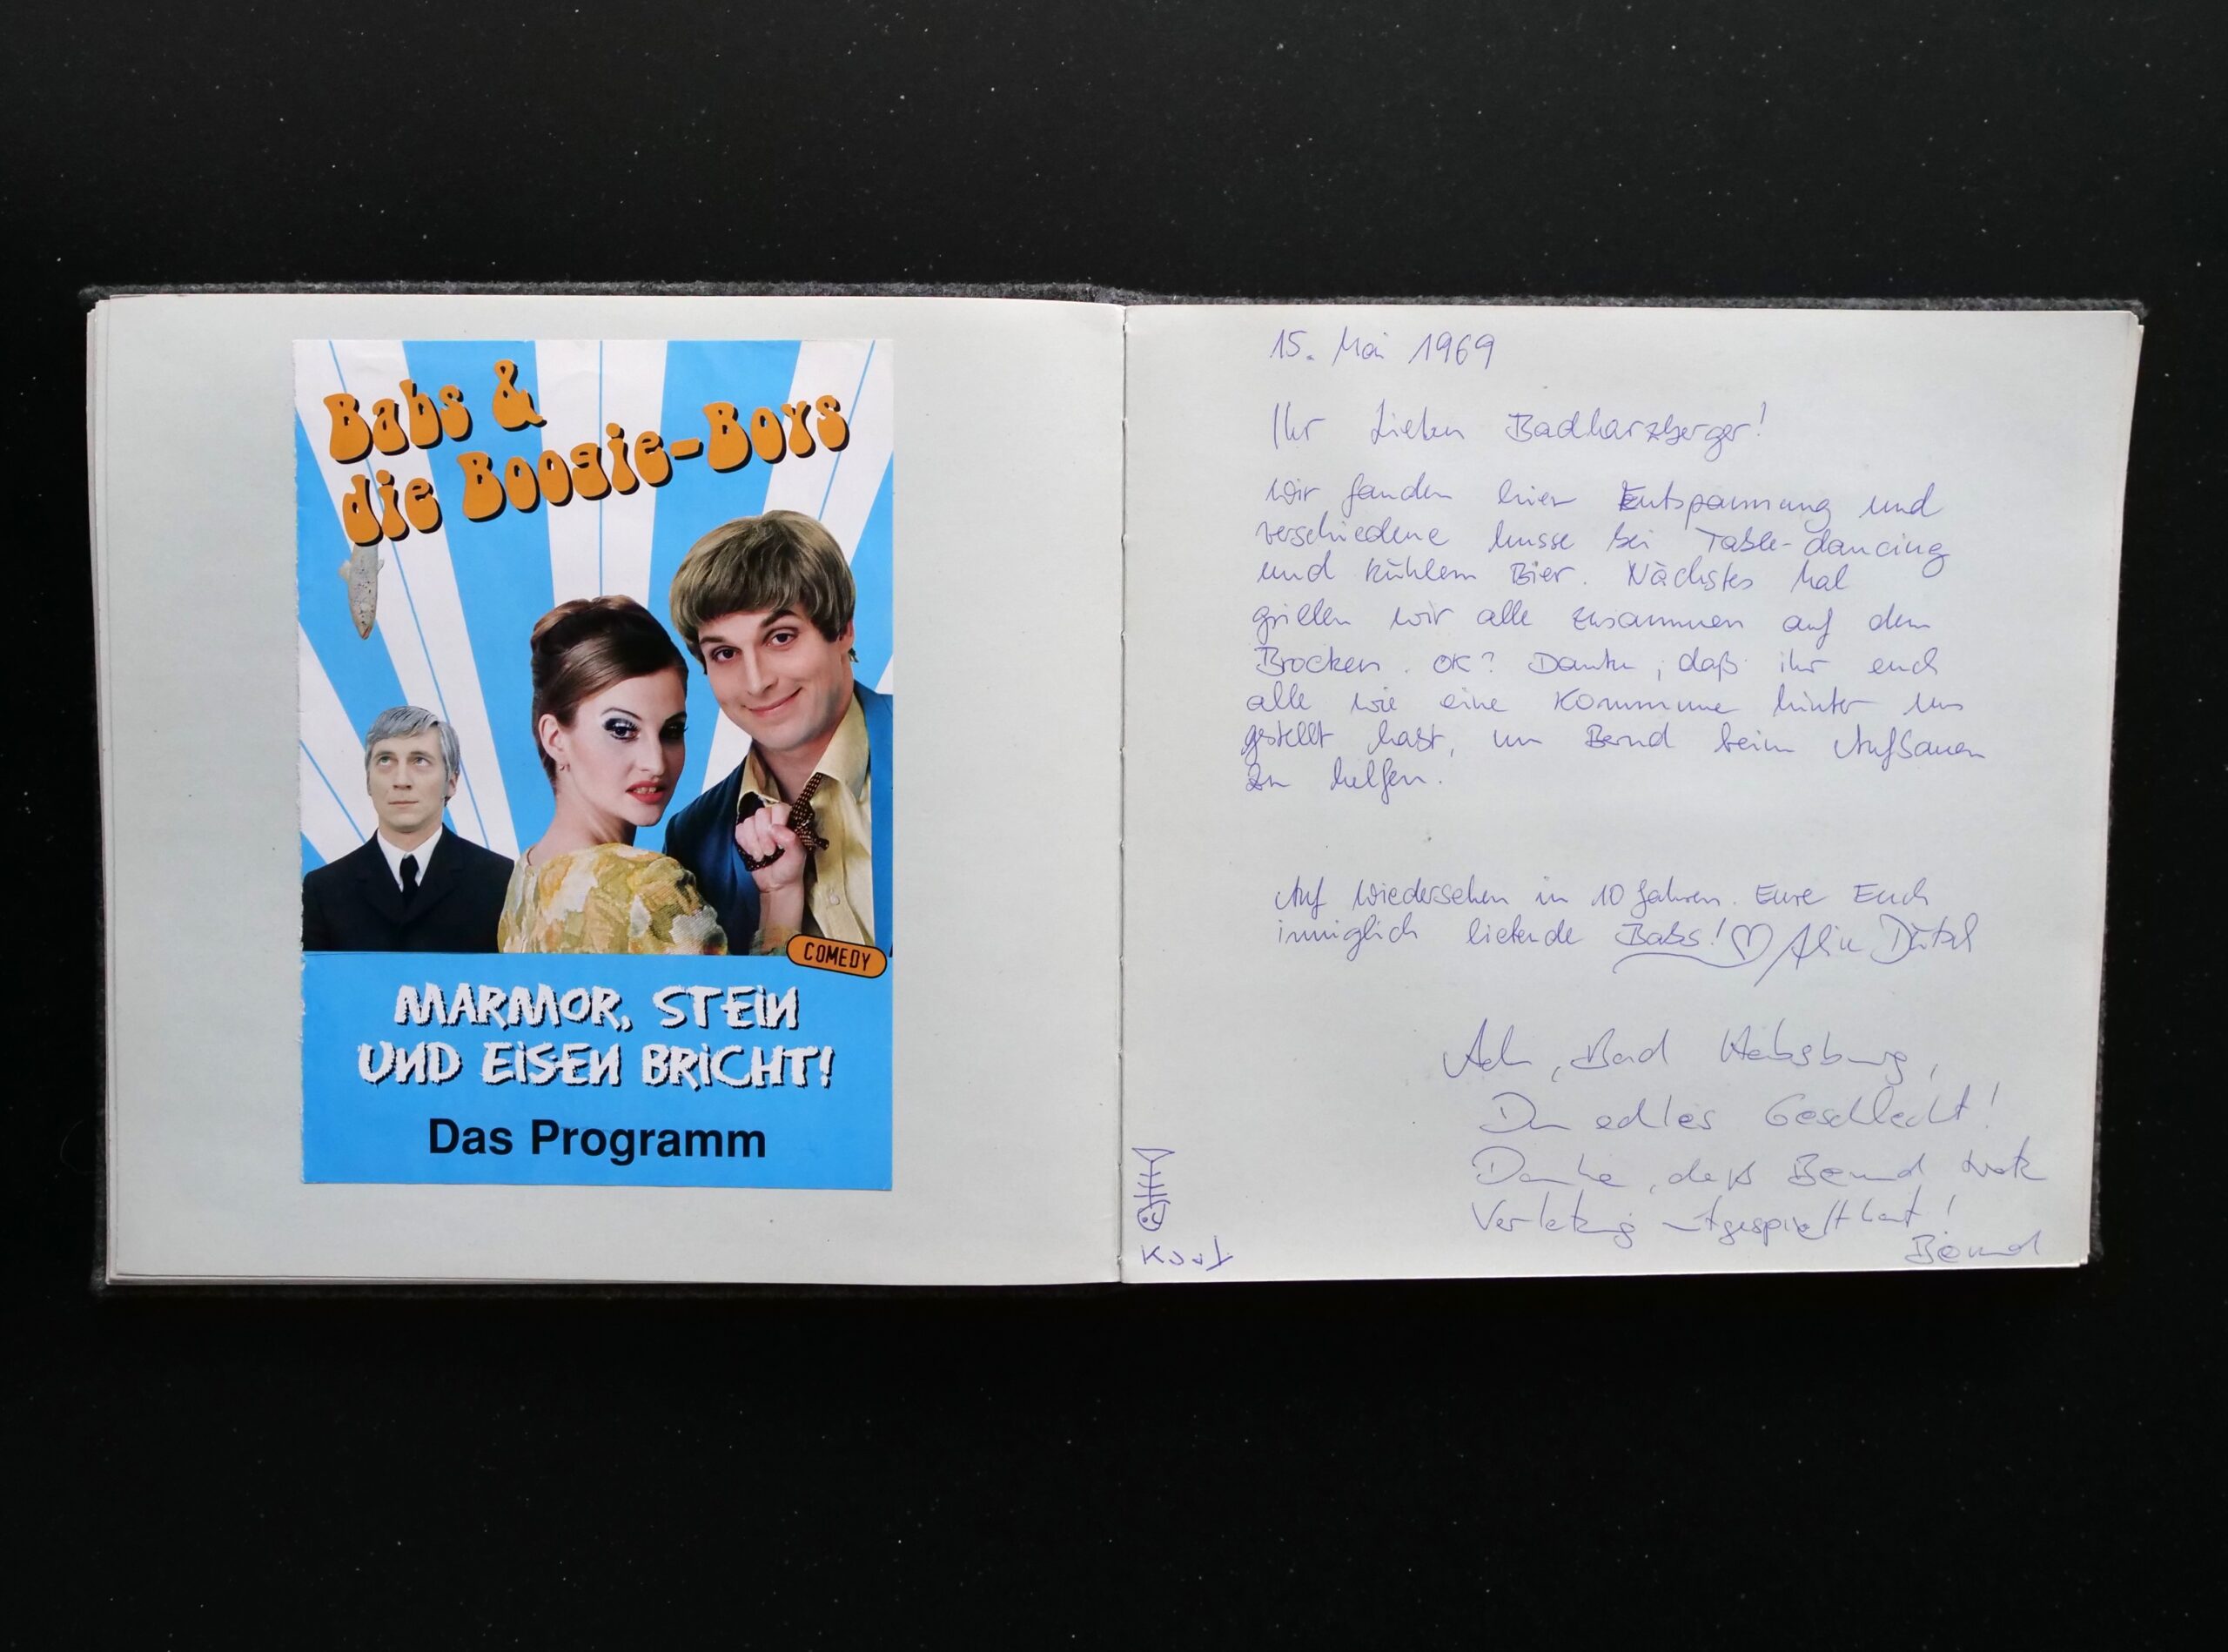 Babs &
die Boogie-Boys
COMEDY
MARMOR, STEIN
UND EISEN BRICHT!
Das Programm
15. Mai 1969
Ihr Lieben Badharzberger!
Wir fanden hier Entspannung und
verschiedene bei Table-dancing
und kühlem Bier. Nächstes Mal
grillen wir alle zusammen auf dem
Brocken. OK? Danke, daß ihr euch
alle wie eine Kommune hinter uns
gestellt habt, um Bernd beim Aufbauen
zu helfen.
Auf Wiedersehen in 10 Jahren. Eure Euch
inniglich liebende Babs!
Ach, Bad Habsburg,
Du edles Geschlecht!
Danke, daß Bernd trotz
Verletzung mitgespielt hat!
Bernd